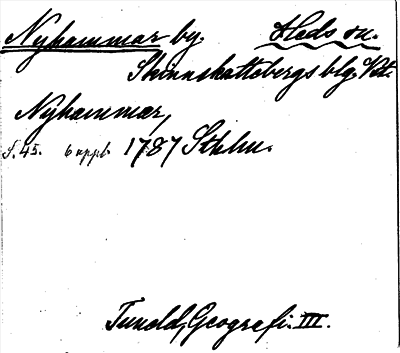 Nyhammar by. Heds sn.
Skinnskattebergs blg. Vstm.
Nyhammar,
S. 45. 6 uppl. 1787 Sthlm.
Tuneld, Geografi. III.